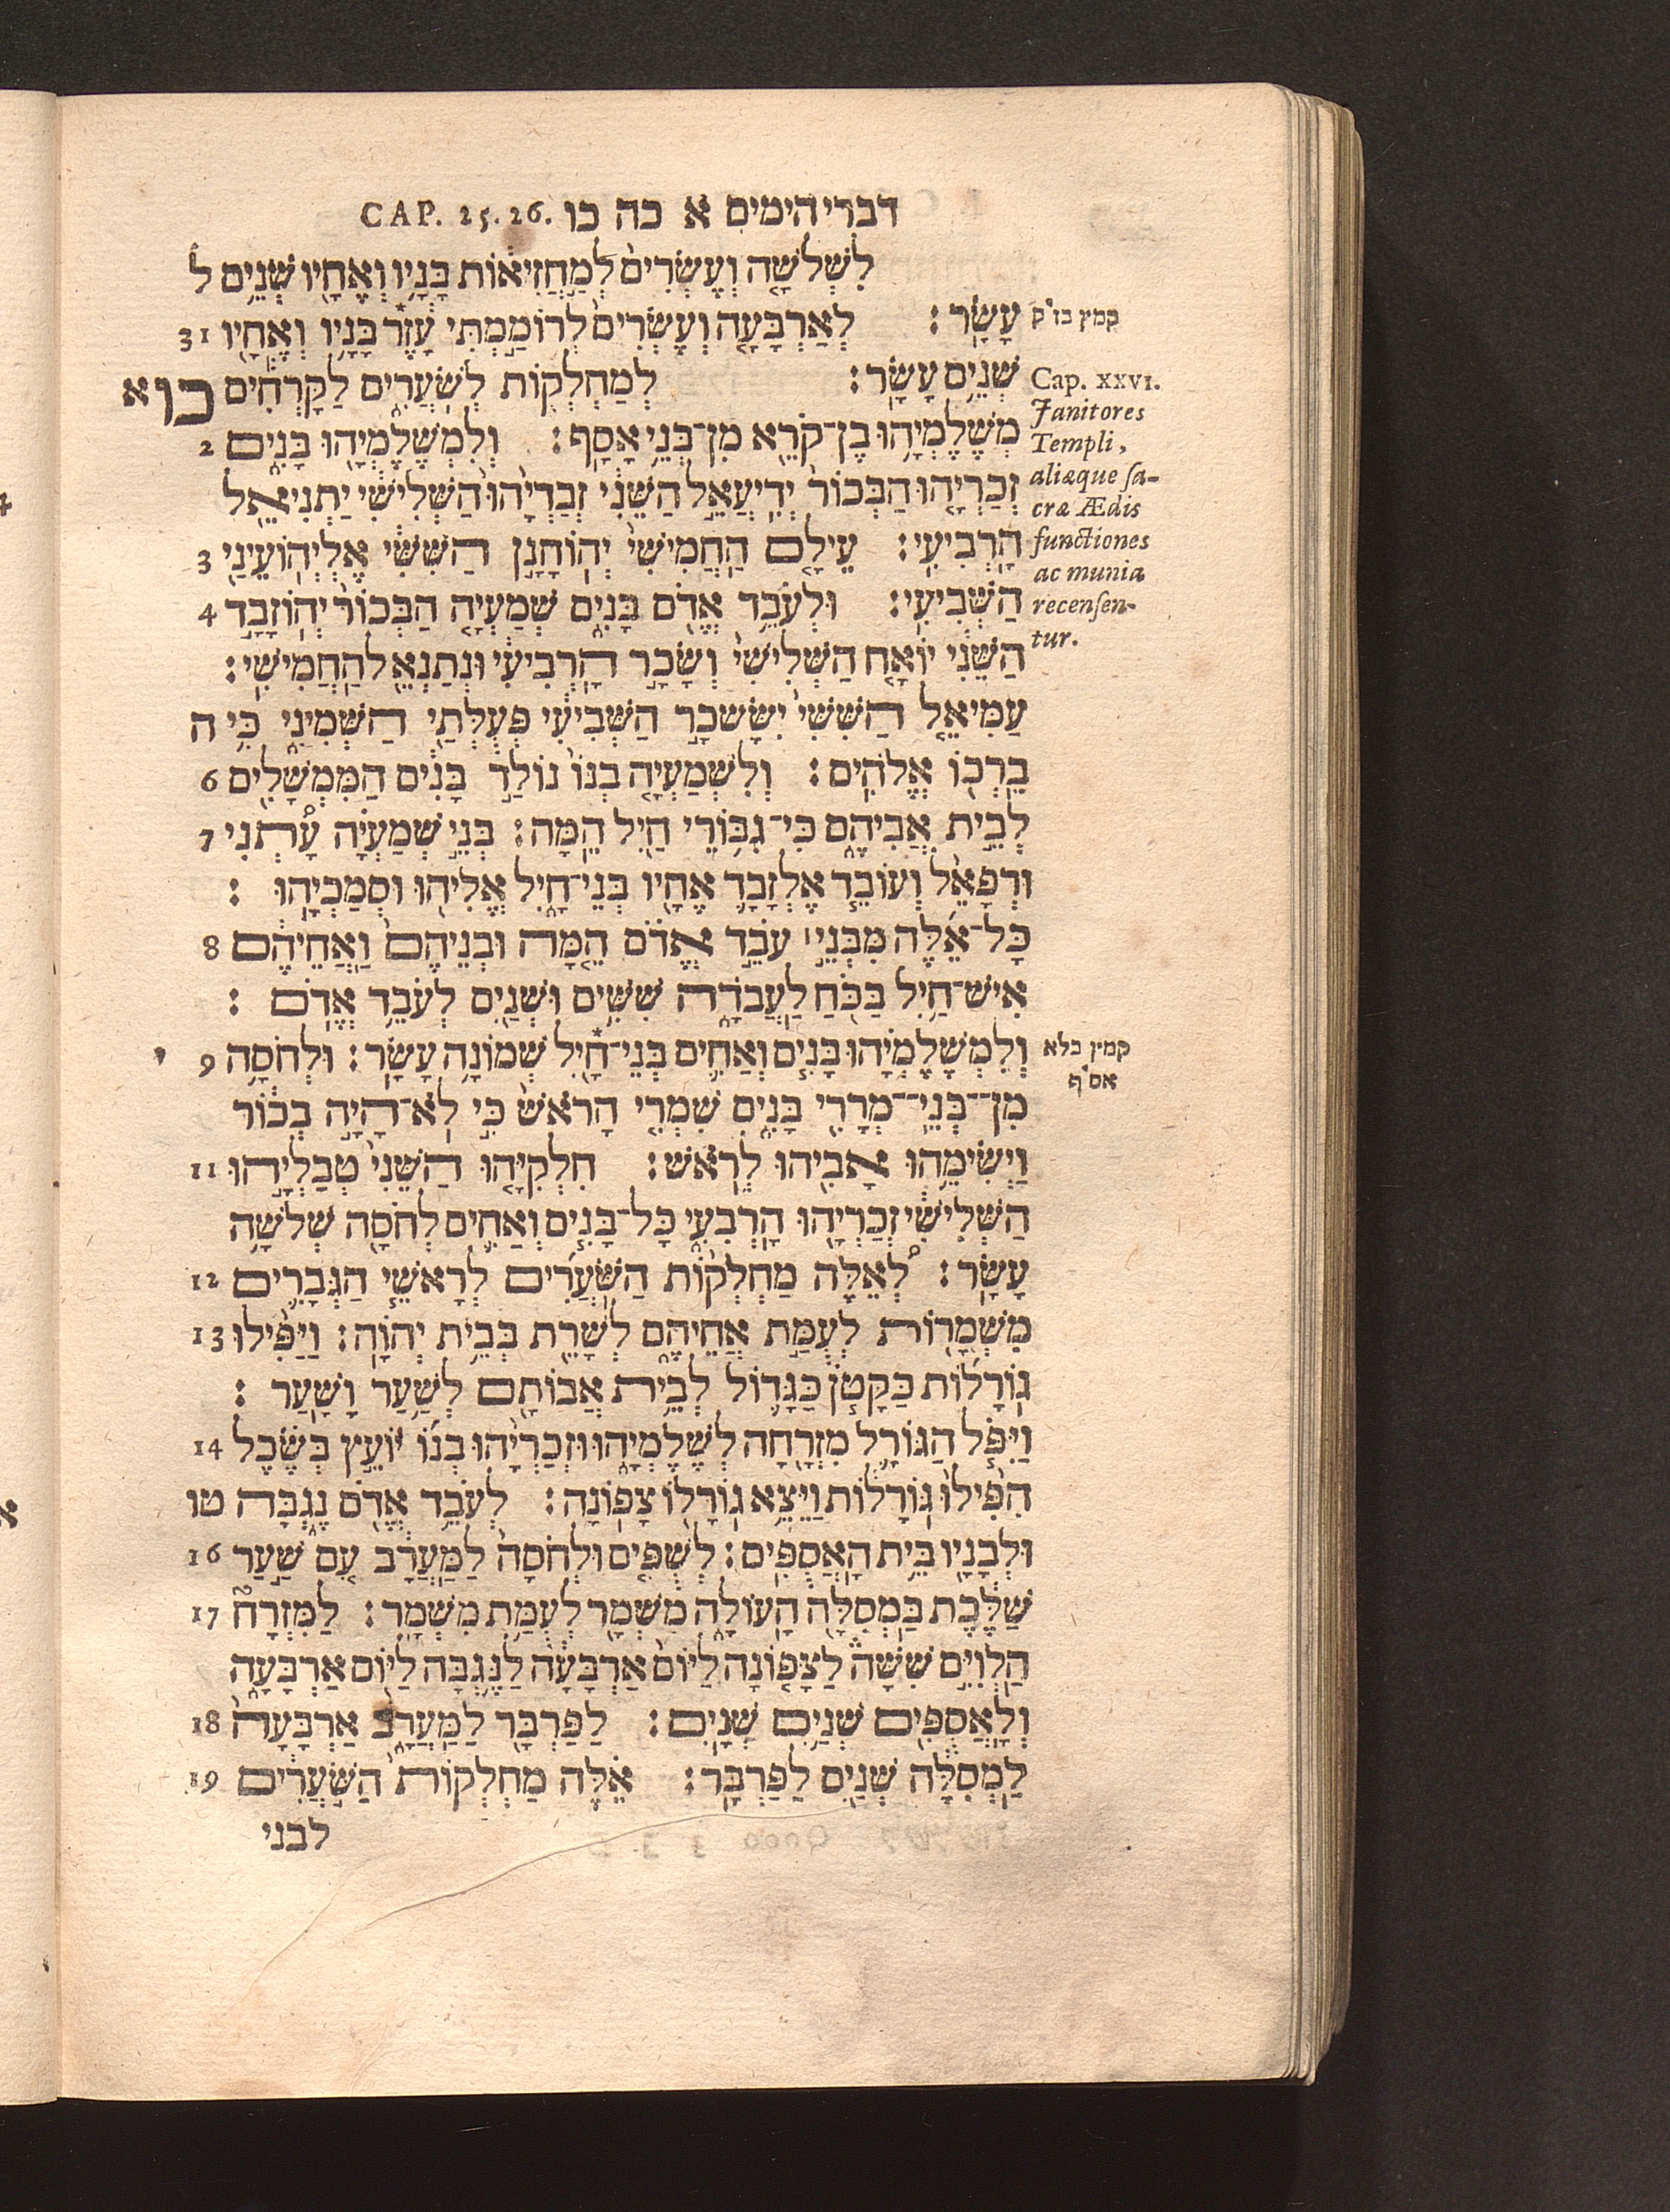 דברי הימים א כה כו CAP. 25.26.
לִשְׁלֹשָׁה וְעֶשְׂרִים לְמַחֲזִיאוֹת בָּנָיו וְאֶחָיו שְׁנֵים ל
עָשָׂר׃ לְאַרְבָּעָה וְעֶשְׂרִים לְרוֹמַמְתִּי עָזֶר בָּנָיו וְאֶחָיו 31
קמץ בז"ק
שְׁנֵים עָשָׂר׃ לְמַחְלְקוֹת לְשֹׁעֲרִים לַקָּרְחִים כו א
מְשֶׁלֶמְיָהוּ בֶן־קֹרֵא מִן־בְּנֵי אָסָף׃ וְלִמְשֶׁלֶמְיָהוּ בָּנִים 2
זְכַרְיָהוּ הַבְּכוֹר יְדִיעֲאֵל הַשֵּׁנִי זְבַדְיָהוּ הַשְּׁלִישִׁי יַתְנִיאֵל
הָרְבִיעִי׃ עֵילָם הַחֲמִישִׁי יְהוֹחָנָן הַשִּׁשִּׁי אֶלְיְהוֹעֵינַי 3
הַשְּׁבִיעִי׃ וּלְעֹבֵד אֱדֹם בָּנִים שְׁמַעְיָה הַבְּכוֹר יְהוֹזָבָד 4
הַשֵּׁנִי יוֹאָח הַשְּׁלִישִׁי וְשָׂכָר הָרְבִיעִי וּנְתַנְאֵל הַחֲמִישִׁי׃
עַמִּיאֵל הַשִּׁשִּׁי יִשָּׂשכָר הַשְּׁבִיעִי פְּעֻלְּתַי הַשְּׁמִינִי כִּי ה
בֵרְכוֹ אֱלֹהִים׃ וְלִשְׁמַעְיָה בְנוֹ נוֹלַד בָּנִים הַמִּמְשָׁלִים 6
לְבֵית אֲבִיהֶם כִּי־גִבּוֹרֵי חַיִל הֵמָּה׃ בְּנֵי שְׁמַעְיָה עָתְנִי 7
וּרְפָאֵל וְעוֹבֵד אֶלְזָבָד אֶחָיו בְּנֵי־חָיִל אֱלִיהוּ וּסְמַכְיָהוּ׃
כָּל־אֵלֶּה מִבְּנֵי עֹבֵד אֱדֹם הֵמָּה וּבְנֵיהֶם וַאֲחֵיהֶם 8
אִישׁ־חַיִל בַּכֹּחַ לַעֲבֹדָה שִׁשִּׁים וּשְׁנַיִם לְעֹבֵד אֱדֹם׃
וְלִמְשֶׁלֶמְיָהוּ בָּנִים וְאַחִים בְּנֵי־חָיִל שְׁמוֹנָה עָשָׂר׃ וּלְחֹסָה 9 י
קמץ בלא
אס"ף
מִן־בְּנֵי־מְרָרִי בָּנִים שִׁמְרִי הָרֹאשׁ כִּי לֹא־הָיָה בְכוֹר
וַיְשִׂימֵהוּ אָבִיהוּ לְרֹאשׁ׃ חִלְקִיָּהוּ הַשֵּׁנִי טְבַלְיָהוּ 11
הַשְּׁלִישִׁי זְכַרְיָהוּ הָרְבִעִי כָּל־בָּנִים וְאַחִים לְחֹסָה שְׁלֹשָׁה
עָשָׂר׃ לְאֵלֶּה מַחְלְקוֹת הַשֹּׁעֲרִים לְרָאשֵׁי הַגְּבָרִים 12
מִשְׁמָרוֹת לְעֻמַּת אֲחֵיהֶם לְשָׁרֵת בְּבֵית יְהוָה׃ וַיַּפִּילוּ 13
גוֹרָלוֹת כַּקָּטֹן כַּגָּדוֹל לְבֵית אֲבוֹתָם לְשַׁעַר וָשָׁעַר׃
וַיִּפֹּל הַגּוֹרָל מִזְרָחָה לְשֶׁלֶמְיָהוּ וּזְכַרְיָהוּ בְנוֹ יוֹעֵץ בְּשֶׂכֶל 14
הִפִּילוּ גּוֹרָלוֹת וַיֵּצֵא גוֹרָלוֹ צָפוֹנָה׃ לְעֹבֵד אֱדֹם נֶגְבָּה טו
וּלְבָנָיו בֵּית הָאֲסֻפִּים׃ לְשֻׁפִּים וּלְחֹסָה לַמַּעֲרָב עִם שַׁעַר 16
שַׁלֶּכֶת בַּמְסִלָּה הָעוֹלָה מִשְׁמָר לְעֻמַּת מִשְׁמָר׃ לַמִּזְרָח 17
הַלְוִיִּם שִׁשָּׁה לַצָּפוֹנָה לַיּוֹם אַרְבָּעָה לַנֶּגְבָּה לַיּוֹם אַרְבָּעָה
וְלָאֲסֻפִּים שְׁנַיִם שְׁנָיִם׃ לַפַּרְבָּר לַמַּעֲרָב אַרְבָּעָה 18
לַמְסִלָּה שְׁנַיִם לַפַּרְבָּר׃ אֵלֶּה מַחְלְקוֹת הַשֹּׁעֲרִים 19
לבני
Cap. XXVI.
Janitores
Templi,
aliæque sa-
cræ Ædis
functiones
ac munia
recensen-
tur.